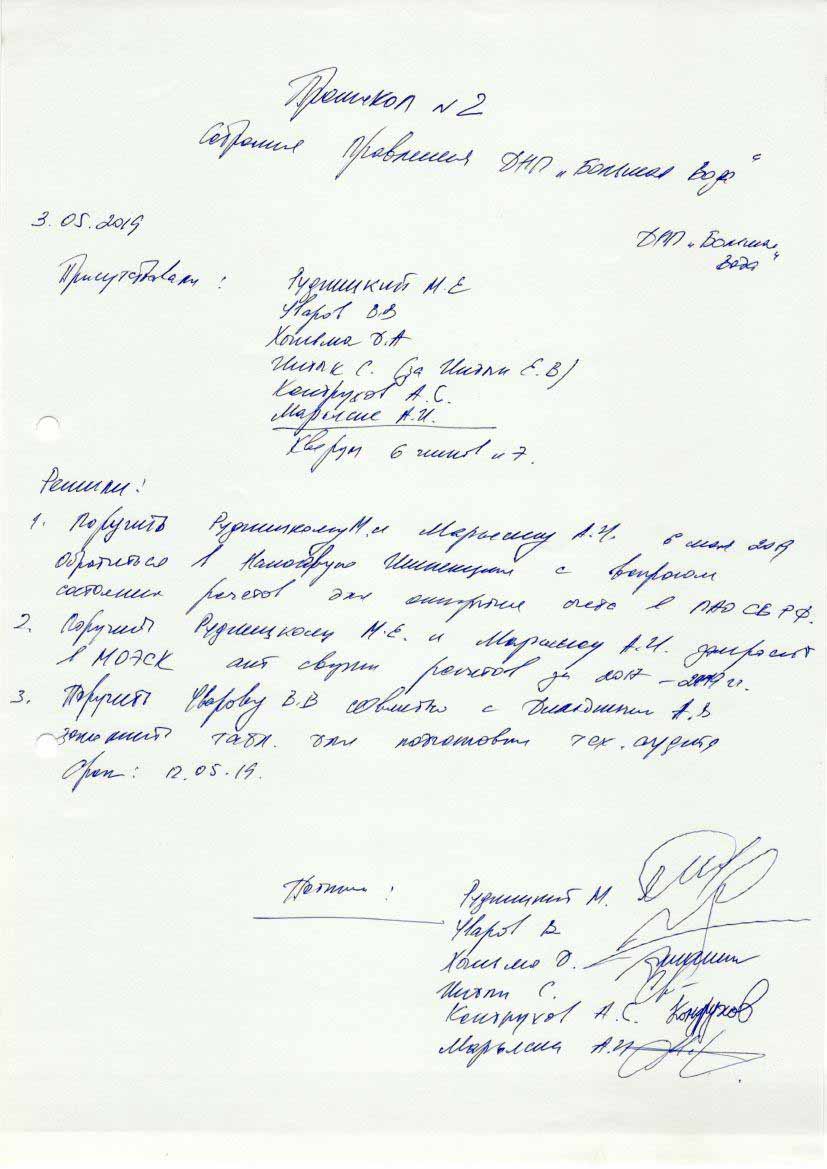 Протокол №2
Собрания Правления ДНП „Большая Вода“
3.05.2019
ДНП „Большая
Вода“
Присутствовали :
Рудницкий М.Е
Уваров В.В
Д.А
С. (за Е.В)
Кондрухов А.С.
А.И.
Кворум 6 членов из 7.
Решили:
1. Поручить Рудницкому М. и А.И. 6 мая 2019
обратиться в Налоговую Инспекцию с вопросом
состояния расчетов для открытия счета в ПАО СБ РФ.
2. Поручить Рудницкому М.Е. и А.И. запросить
в МОЭСК акт сверки расчетов за 2017 – 2019 гг.
3. Поручить Уварову В.В совместно с А.В
заполнить табл. для подготовки тех. аудита
Срок: 12.05.19.
Подписи :
Рудницкий М.
Уваров В
Д.
С.
Кондрухов А.С. Кондрухов
А.И